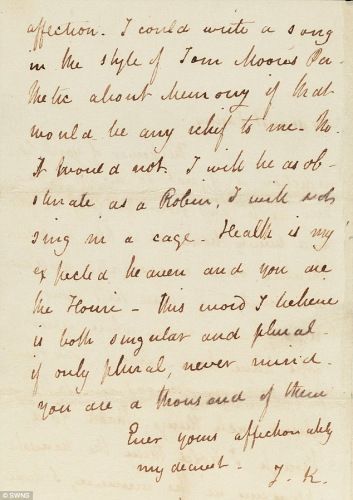 affection. I could write a song
in the style of Tom Moore's Pa-
thetic about Memory if that
would be any relief to me - No.
It would not. I will be as ob-
stinate as a Robin, I will not
sing in a cage - Health is my
expected heaven and you are
the Houri - this word I believe
is both singular and plural -
if only plural, never mind -
you are a thousand of them
Ever yours affectionately
my dearest -
J. K.
© SWNS